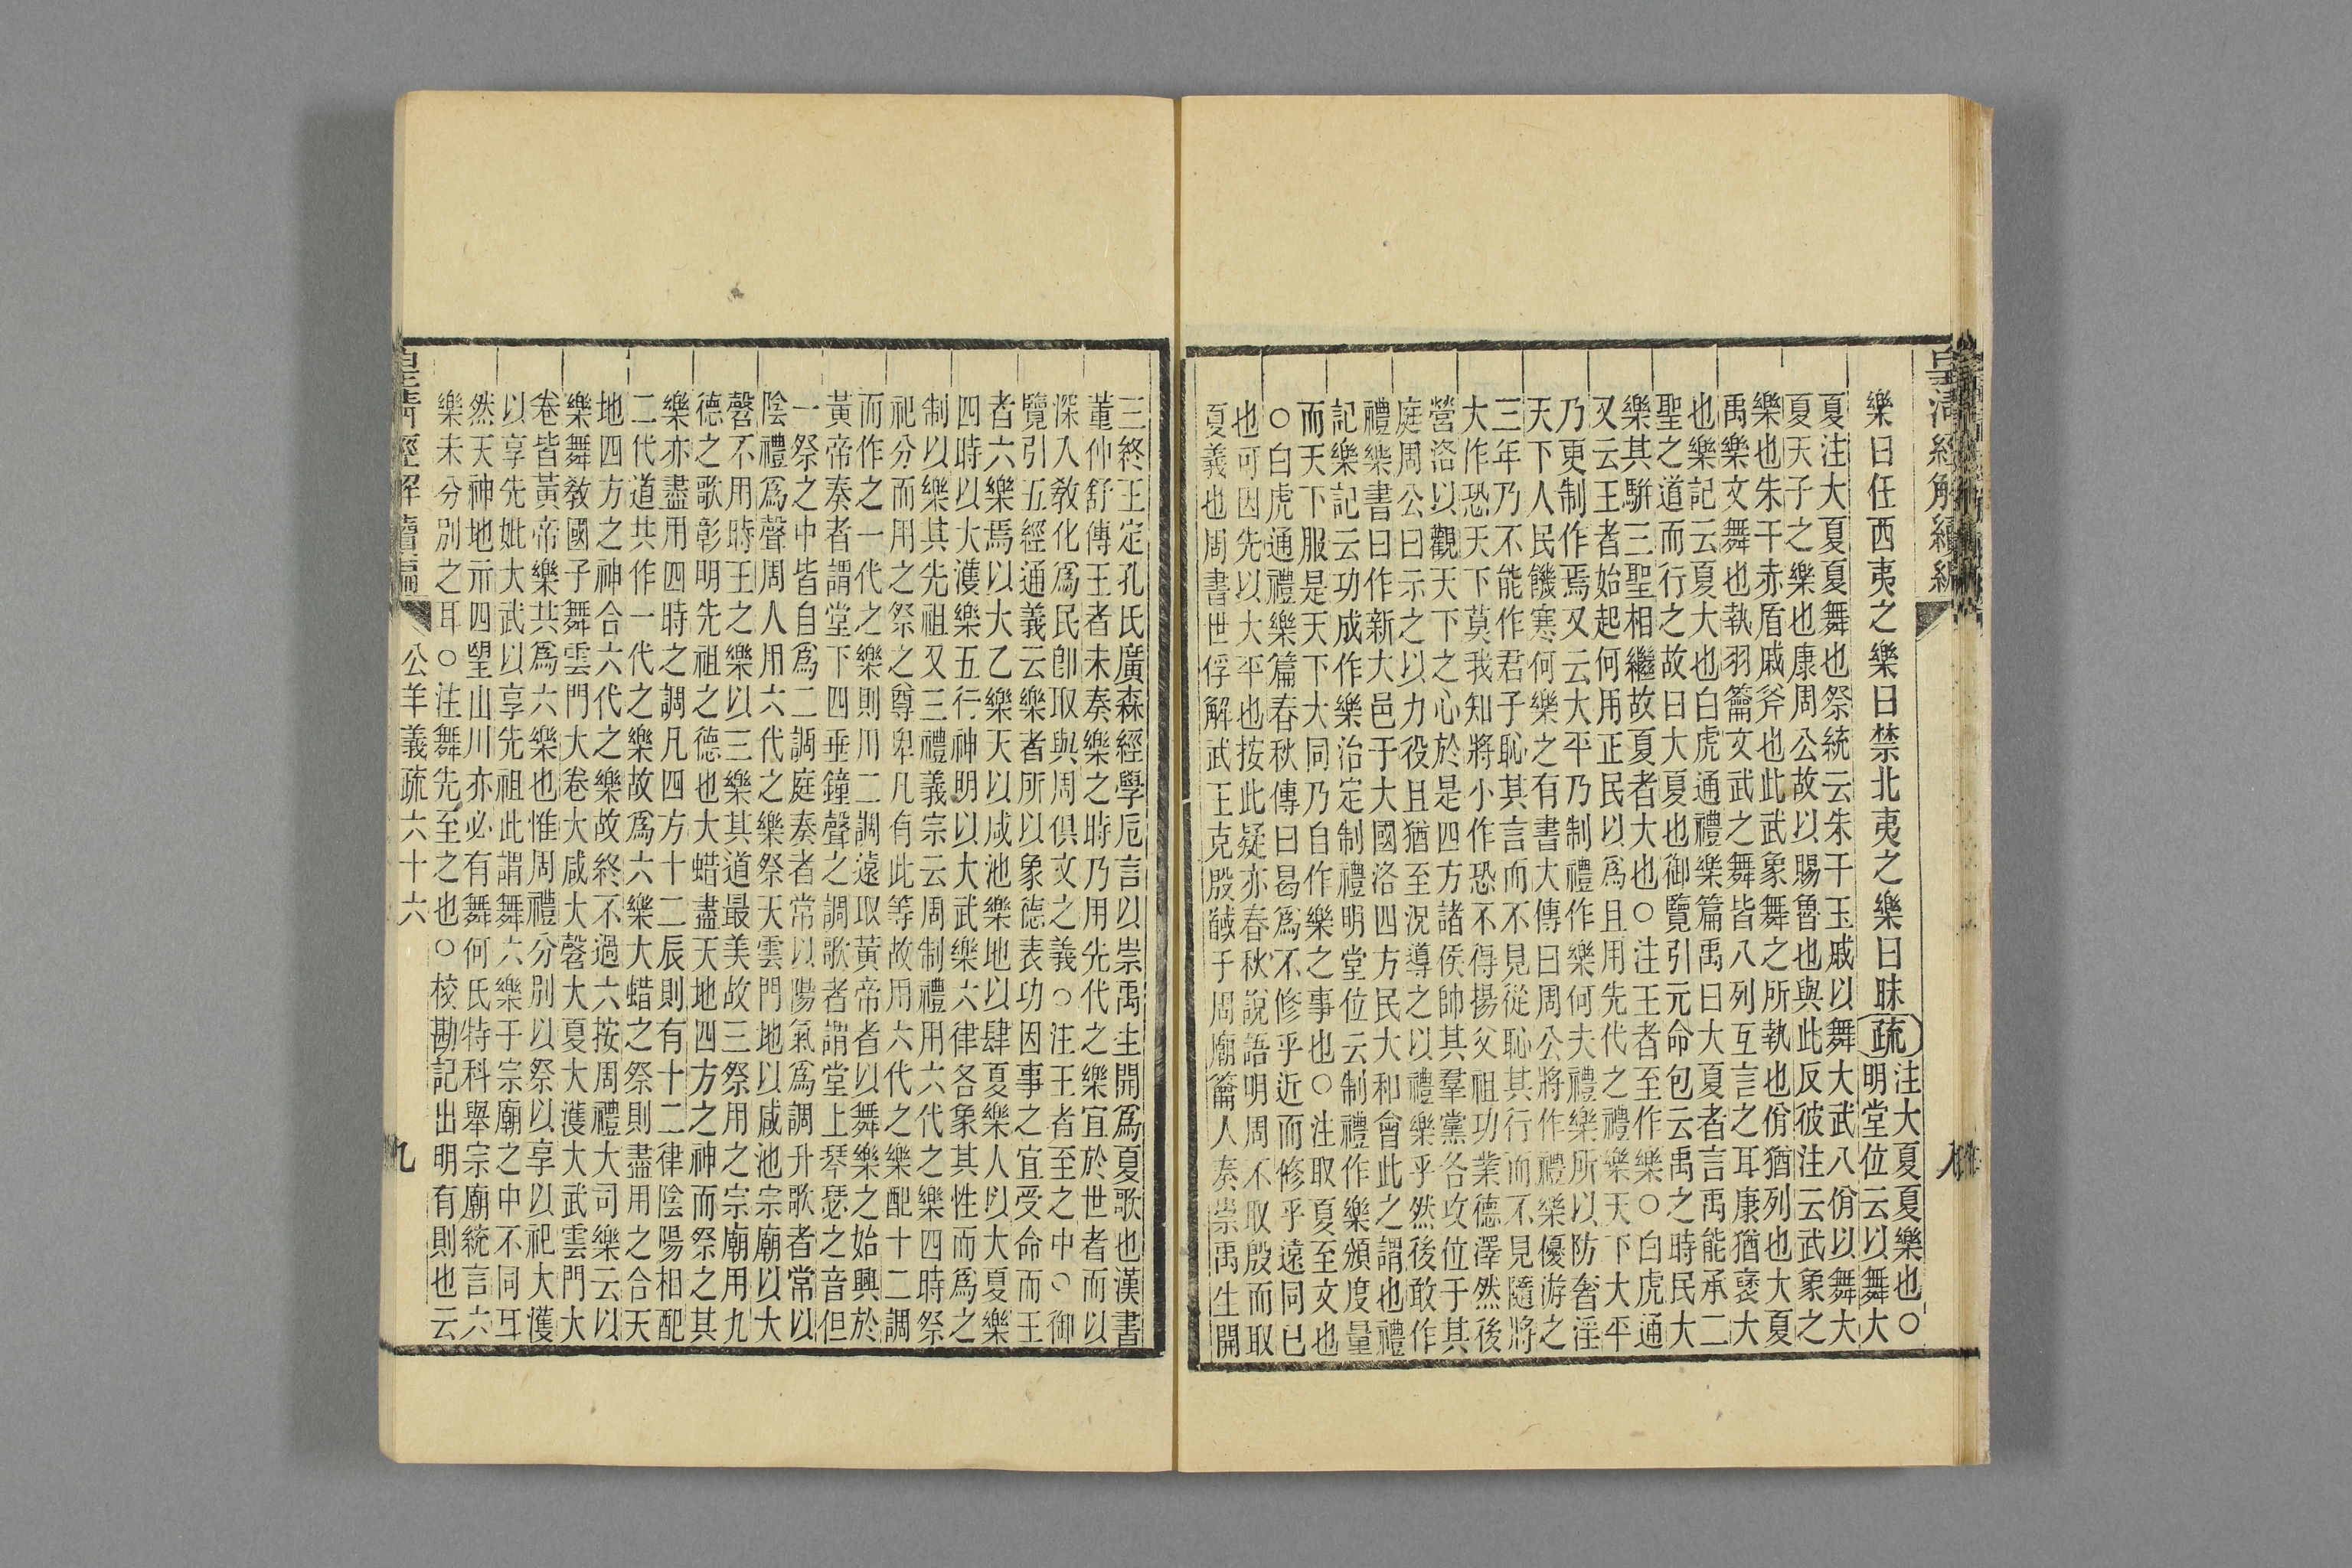 皇清經解續編
樂曰任西夷之樂曰禁北夷之樂曰昧疏注大夏夏樂也○
明堂位云以舞大
夏注大夏夏舞也祭統云朱干玉戚以舞大武八佾以舞大
夏天子之樂也康周公故以賜魯也與此反彼注云武象之
樂也朱干赤盾戚斧也此武象舞之所執也佾猶列也大夏
禹樂文舞也執羽籥文武之舞皆八列互言之耳康猶襃大
也樂記云夏大也白虎通禮樂篇禹曰大夏者言禹能承二
聖之道而行之故曰大夏也御覽引元命包云禹之時民大
樂其駢三聖相繼故夏者大也○注王者至作樂○白虎通
又云王者始起何用正民以爲且用先代之禮樂天下大平
乃更制作焉又云大平乃制禮作樂何夫禮樂所以防奢淫
天下人民饑寒何樂之有書大傳曰周公將作禮樂優游之
三年乃不能作君子恥其言而不見從恥其行而不見隨將
大作恐天下莫我知將小作恐不得揚父祖功業德澤然後
營洛以觀天下之心於是四方諸侯帥其羣黨各攻位于其
庭周公曰示之以力役且猶至況導之以禮樂乎然後敢作
禮樂書曰作新大邑于大國洛四方民大和會此之謂也禮
記樂記云功成作樂治定制禮明堂位云制禮作樂頒度量
而天下服是天下大同乃自作樂之事也○注取夏至文也
○白虎通禮樂篇春秋傳曰曷爲不修乎近而修乎遠同已
也可因先以大平也按此疑亦春秋說語明周不取殷而取
夏義也周書世俘解武王克殷馘于周廟籥人奏崇禹生開
三終王定孔氏廣森經學卮言以崇禹生開爲夏歌也漢書
董仲舒傳王者未奏樂之時乃用先代之樂宜於世者而以
深入敎化爲民卽取與周俱文之義○注王者至之中○御
覽引五經通義云樂者所以象德表功因事之宜受命而王
者六樂焉以大乙樂天以咸池樂地以肆夏樂人以大夏樂
四時以大濩樂五行神明以大武樂六律各象其性而爲之
制以樂其先祖又三禮義宗云周制禮用六代之樂四時祭
祀分而用之祭之尊卑凡有此等故用六代之樂配十二調
而作之一代之樂則用二調遠取黃帝者以舞樂之始興於
黃帝奏者謂堂下四垂鐘聲之調歌者謂堂上琴瑟之音但
一祭之中皆自爲二調庭奏者常以陽氣爲調升歌者常以
陰禮爲聲周人用六代之樂祭天雲門地以咸池宗廟以大
磬不用時王之樂以三樂其道最美故三祭用之宗廟用九
德之歌彰明先祖之德也大蜡盡天地四方之神而祭之其
樂亦盡用四時之調凡四方十二辰則有十二律陰陽相配
二代道共作一代之樂故爲六樂大蜡之祭則盡用之合天
地四方之神合六代之樂故終不過六按周禮大司樂云以
樂舞敎國子舞雲門大卷大咸大磬大夏大濩大武雲門大
卷皆黃帝樂共爲六樂也惟周禮分別以祭以享以祀大濩
以享先妣大武以享先祖此謂舞六樂于宗廟之中不同耳
然天神地示四望山川亦必有舞何氏特科舉宗廟統言六
樂未分別之耳○注舞先至之也○校勘記出明有則也云
皇清經解續編 公羊義疏六十六 九